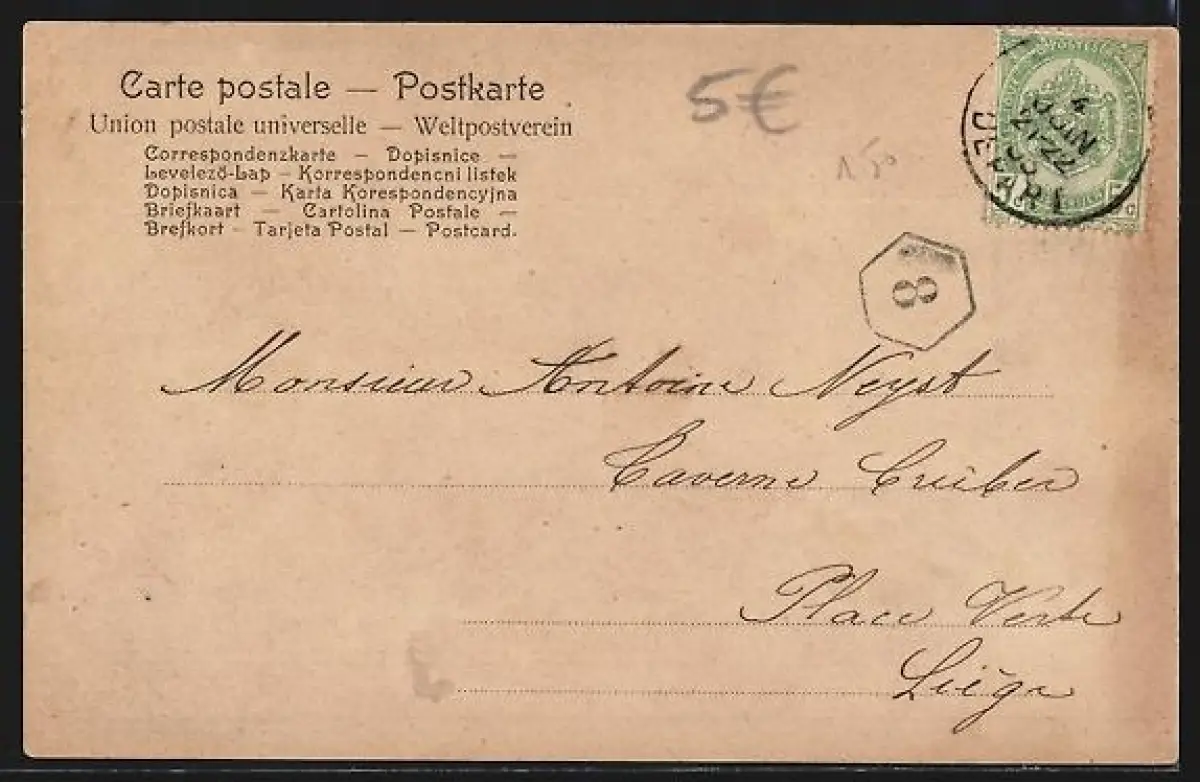 Carte postale — Postkarte
Union postale universelle — Weltpostverein
Correspondenzkarte — Dopisnice —
Levelező-Lap — Korrespondencni listek
Dopisnica — Karta Korespondencyjna
Briefkaart — Cartolina Postale —
Brefkort — Tarjeta Postal — Postcard.
5€
4
JUIN
DEPART
8
Monsieur Antoine Neyst
Taverne
Place Verte
Liège